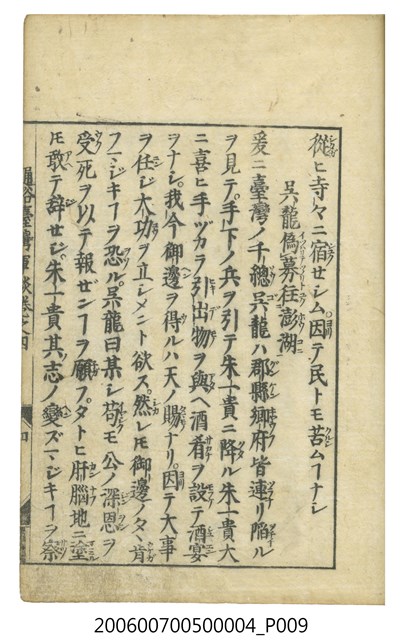 從ヒ寺々ニ宿セシム因テ民トモ苦ムヿナシ
呉龍偽募往澎湖
爰ニ臺灣ノ千總呉龍ハ郡縣郷府皆連リ陷ル
ヲ見テ手下ノ兵ヲ引テ朱一貴ニ降ル朱一貴大
ニ喜ヒ手ヅカラ引出物ヲ與ヘ酒肴ヲ設テ酒宴
ヲナシ我今御邊ヲ得ルハ天ノ賜ナリ因テ大事
ヲ任シ大功ヲ立シメント欲ス然レモ御邊ノタヽ肯
フマジキヿヲ恐ル呉龍曰某シ苟モ公ノ深恩ヲ
受死ヲ以テ報ゼンヿヲ願フタトヒ肝腦地ニ塗
モ敢テ辞セジ朱一貴其志ノ變ズマジキヿヲ察
通俗臺灣軍談卷之四
四
200600700500004_P009